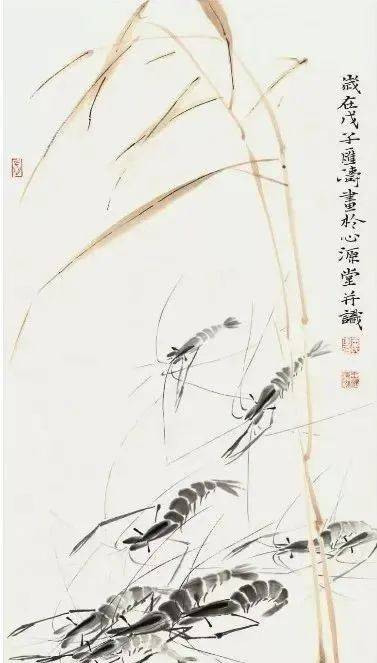 歲在戊子匯濤畫於心源堂并識